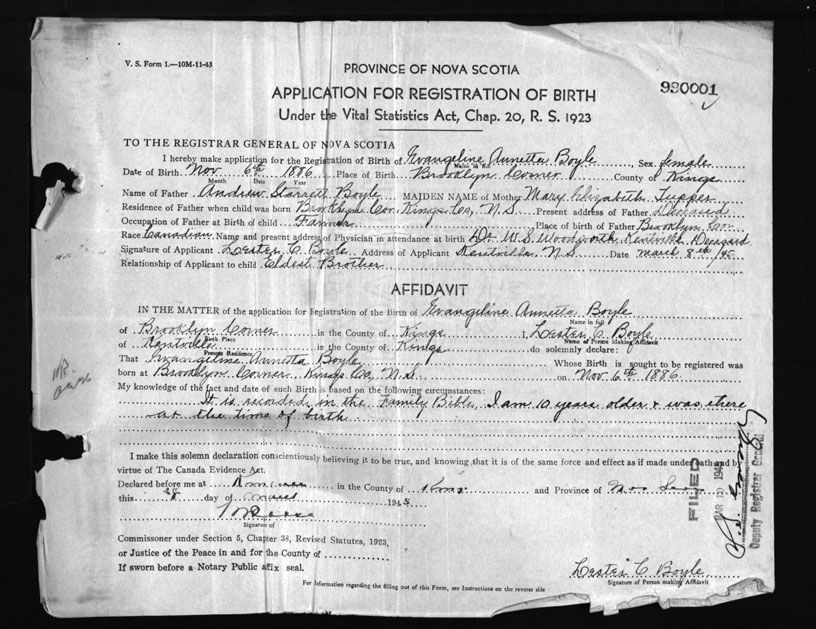 V. S. Form 1.—10M-11-43
PROVINCE OF NOVA SCOTIA
APPLICATION FOR REGISTRATION OF BIRTH
930001
Under the Vital Statistics Act, Chap. 20, R. S. 1923
TO THE REGISTRAR GENERAL OF NOVA SCOTIA
I hereby make application for the Registration of Birth of Evangeline Annetta Boyle, Sex female
Name in full
Date of Birth Nov 6th 1886 Place of Birth Brooklyn Corner County of Kings
Month Date Year
Name of Father Andrew Starrett Boyle MAIDEN NAME of Mother Mary Elizabeth Tupper
Residence of Father when child was born Brooklyn Cor Kings Co, N.S Present address of Father Deceased
Occupation of Father at Birth of child Farmer Place of birth of Father Brooklyn Cor
Race Canadian Name and present address of Physician in attendance at birth Dr W. S. Woodworth, Kentville Deceased
Signature of Applicant Lester C Boyle Address of Applicant Kentville N.S Date March 8th /45
Relationship of Applicant to child Eldest Brother
AFFIDAVIT
IN THE MATTER of the application for Registration of the Birth of Evangeline Annetta Boyle
Name in full
of Brooklyn Corner in the County of Kings I, Lester C Boyle
Birth Place Name of Person Making Affidavit
of Kentville in the County of Kings do solemnly declare:
Present Residence
That Evangeline Annetta Boyle Whose Birth is sought to be registered was
born at Brooklyn Corner Kings Co, N.S. on Nov 6th 1886
My knowledge of the fact and date of such Birth is based on the following circumstances:
It is recorded in the Family Bible, I am 10 years older & was there
at the time of birth
I make this solemn declaration conscientiously believing it to be true, and knowing that it is of the same force and effect as if made under oath and by
virtue of The Canada Evidence Act.
Declared before me at in the County of Kings and Province of Nova Scotia
this day of March 1945
Signature of
Commissioner under Section 5, Chapter 38, Revised Statutes, 1923,
or Justice of the Peace in and for the County of
If sworn before a Notary Public afix seal.
Lester C Boyle
Signature of Person making Affidavit
For Information regarding the filling out of this Form, see Instructions on the reverse side
FILED
MAR 1945
Deputy Registrar General